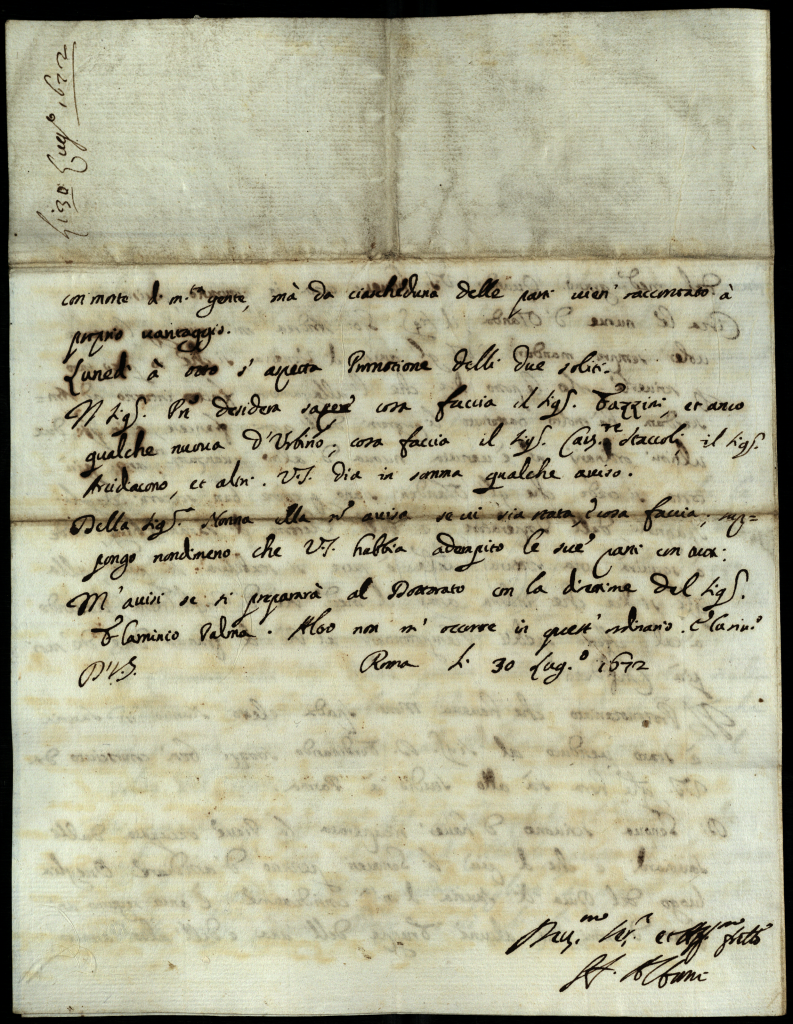 li 30 Lug.o 1672
con morte di m.ta gente, mà da ciascheduna delle parti vien' raccontato à
proprio vantaggio.
Lunedi à otto s' aspetta Promotione delli due soliti.
Il Sig.r Pn̄e desidera sapere cosa faccia il Sig.r Fazzini, et anco
qualche nuova d'Urbino, cosa faccia il Sig.r Cav.re Staccoli, il Sig.r
Arcidiacono, et altri. V.S. dia in somma qualche aviso.
Della Sig.ra Nonna ella n' avise se vi sia stata, e cosa faccia; sup=
pongo nondimeno che V.S. habbia adempito le sue parti con
M' avisi se si prepararà al Dottorato con la direttione del Sig.r
Flaminio Palma. Altro non m' occorre in quest' ordinario. E
D.V.S. Roma li 30 Lug.o 1672
Dev.mo Ser.re et Aff.mo frello
Albani